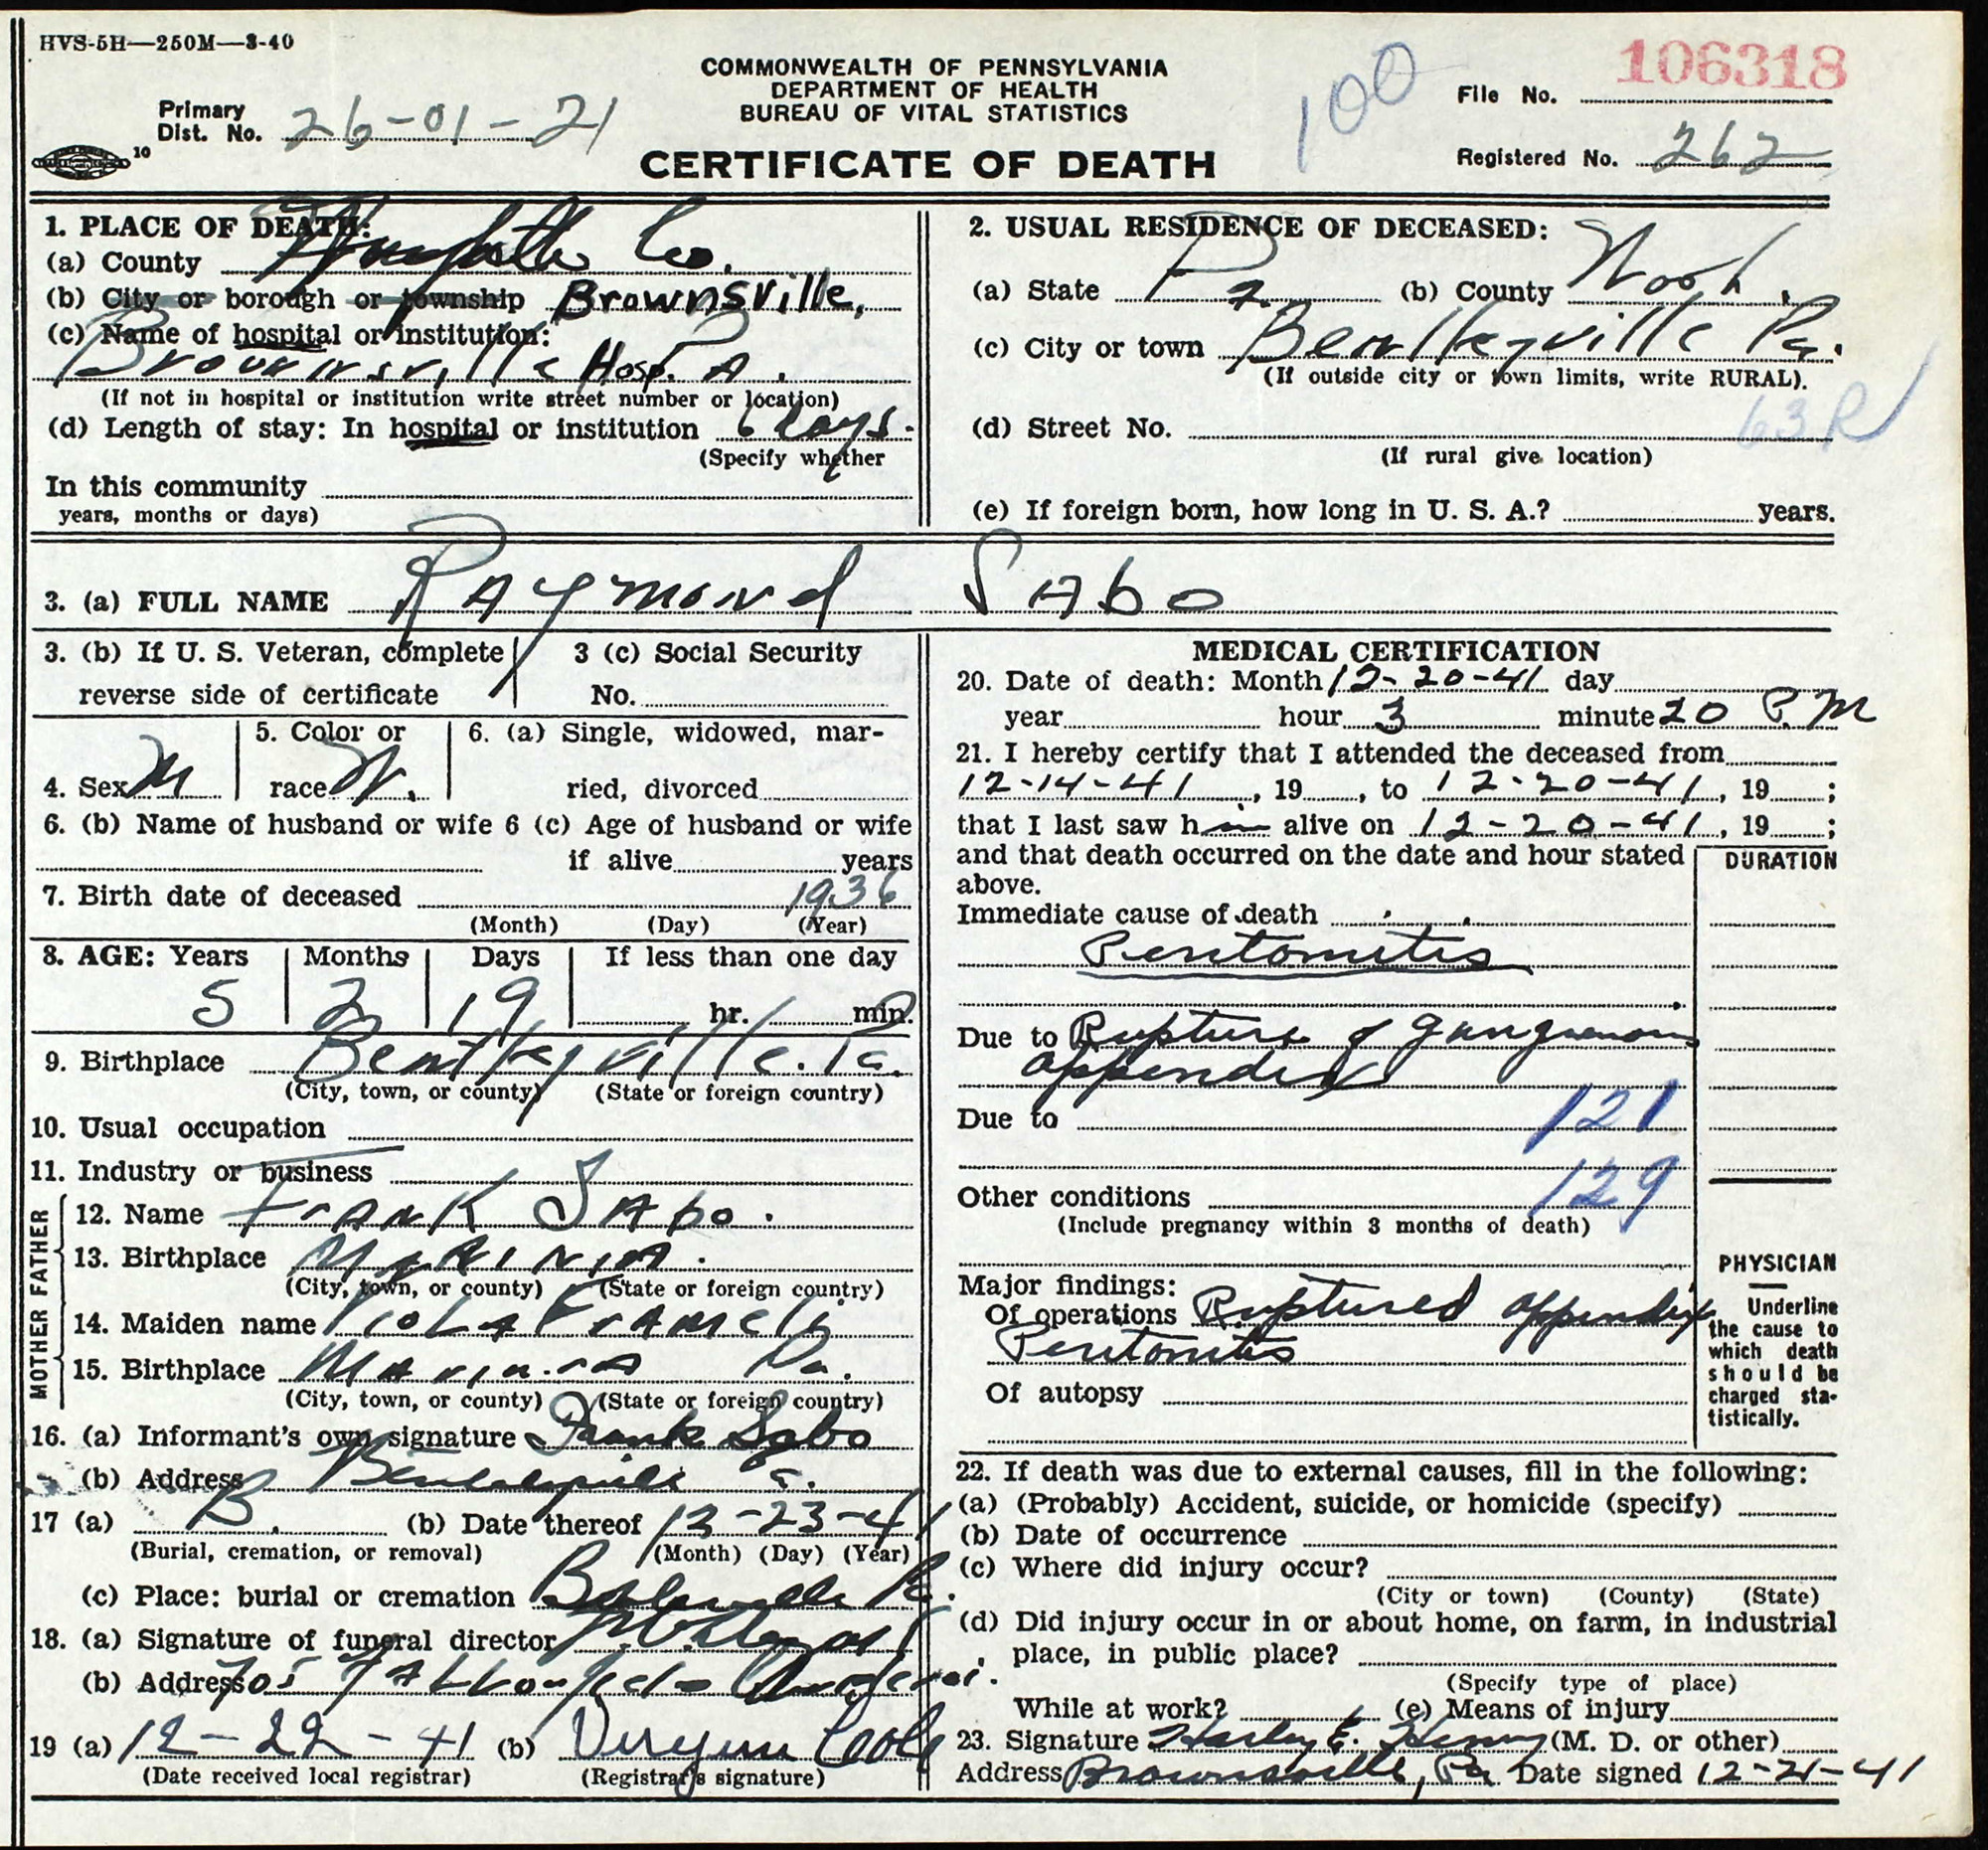 HVS-5H—250M—3-40
COMMONWEALTH OF PENNSYLVANIA
DEPARTMENT OF HEALTH
BUREAU OF VITAL STATISTICS
CERTIFICATE OF DEATH
100
106318
File No.
Registered No. 262
Primary
Dist. No. 26-01-21
10
1. PLACE OF DEATH:
(a) County Co.
(b) City or borough or township Brownsville,
(c) Name of hospital or institution:
Brownsville Hosp. Pa.
(If not in hospital or institution write street number or location)
(d) Length of stay: In hospital or institution 6 days.
(Specify whether
In this community
years, months or days)
2. USUAL RESIDENCE OF DECEASED:
(a) State Pa. (b) County Wash.
(c) City or town Bentleyville Pa.
(If outside city or town limits, write RURAL).
63R
(d) Street No.
(If rural give location)
(e) If foreign born, how long in U. S. A.? years.
3. (a) FULL NAME RAymond SAbo
3. (b) If U. S. Veteran, complete
reverse side of certificate
3 (c) Social Security
No.
4. Sex M
5. Color or
race W.
6. (a) Single, widowed, mar-
ried, divorced
6. (b) Name of husband or wife 6 (c) Age of husband or wife
if alive years
7. Birth date of deceased 1936
(Month) (Day) (Year)
8. AGE: Years Months Days If less than one day
5 2 19 hr. min.
9. Birthplace Bentleyville. Pa.
(City, town, or county) (State or foreign country)
10. Usual occupation
11. Industry or business
FATHER
12. Name FrANK SAbo.
13. Birthplace
(City, town, or county) (State or foreign country)
MOTHER
14. Maiden name VioLA
15. Birthplace Pa.
(City, town, or county) (State or foreign country)
16. (a) Informant's own signature Frank Sabo
(b) Address
17 (a) B. (b) Date thereof 12-23-41
(Burial, cremation, or removal) (Month) (Day) (Year)
(c) Place: burial or cremation Pa.
18. (a) Signature of funeral director
(b) Address 705
19 (a) 12-22-41 (b)
(Date received local registrar) (Registrar's signature)
MEDICAL CERTIFICATION
20. Date of death: Month 12-20-41 day
year hour 3 minute 20 P.M
21. I hereby certify that I attended the deceased from
12-14-41, 19 , to 12-20-41, 19 ;
that I last saw him alive on 12-20-41, 19 ;
and that death occurred on the date and hour stated
above.
DURATION
Immediate cause of death
Peritonitis
Due to Rupture of gangrenous
appendix
Due to 121
129
Other conditions
(Include pregnancy within 3 months of death)
Major findings:
Of operations Ruptured appendix
Peritonitis
Of autopsy
PHYSICIAN
Underline
the cause to
which death
should be
charged sta-
tistically.
22. If death was due to external causes, fill in the following:
(a) (Probably) Accident, suicide, or homicide (specify)
(b) Date of occurrence
(c) Where did injury occur?
(City or town) (County) (State)
(d) Did injury occur in or about home, on farm, in industrial
place, in public place?
(Specify type of place)
While at work? (e) Means of injury
23. Signature Harley E. Henry (M. D. or other)
Address Brownsville, Pa Date signed 12-21-41